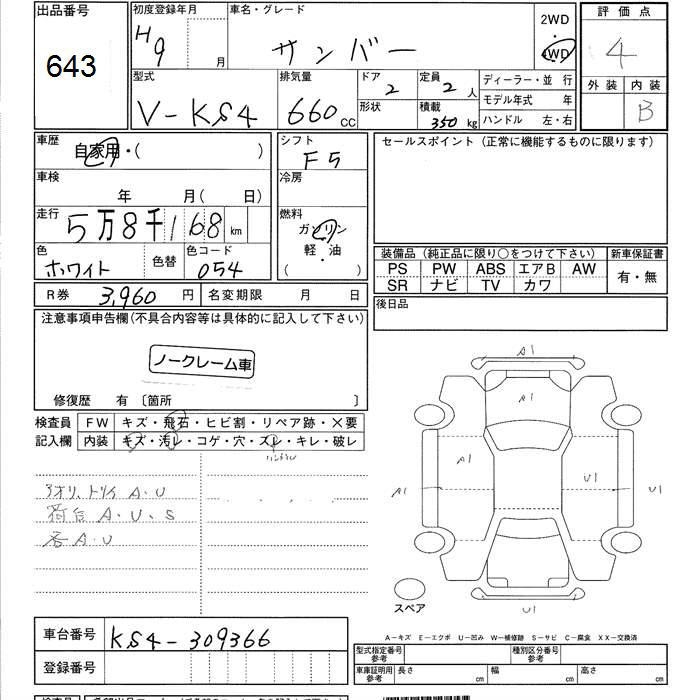 出品番号 初度登録年月 車名・グレード 2WD 評価点
643 H9 月 サンバー ・ 4WD 4
型式 排気量 ドア 定員 ディーラー・並 行 外装 内装
V-KS4 660 CC 2 2 人 モデル年式 年 B
形状 積載 350 kg ハンドル 左・右
車歴 シフト セールスポイント（正常に機能するものに限ります）
自家用・( ) F5
車検 冷房
年 月( 日)
走行 燃料
5万8千168 km ガソリン
色 色替 色コード 軽・油
ホワイト 054 ( )
装備品（純正品に限り○をつけて下さい） 新車保証書
PS PW ABS エアB AW 有・無
SR ナビ TV カワ
R券 3,960 円 名変期限 月 日
後日品
注意事項申告欄(不具合内容等は具体的に記入して下さい)
ノークレーム車
修復歴 有 〔箇所 〕
検査員 FW キズ・飛石・ヒビ割・リペア跡・×要
記入欄 内装 キズ・汚レ・コゲ・穴・スレ・キレ・破レ
ハンドル
アオリ、トリイ A・U
荷台 A・U・S
各A・U
A1
A1
A1
U1
U1
U1
スペア
A－キズ E－エクボ U－凹み W－補修跡 S－サビ C－腐食 XX－交換済
車台番号 KS4-309366
登録番号
型式指定番号 参考 種別区分番号 参考
車庫証明用 参考 長さ cm 幅 cm 高さ cm